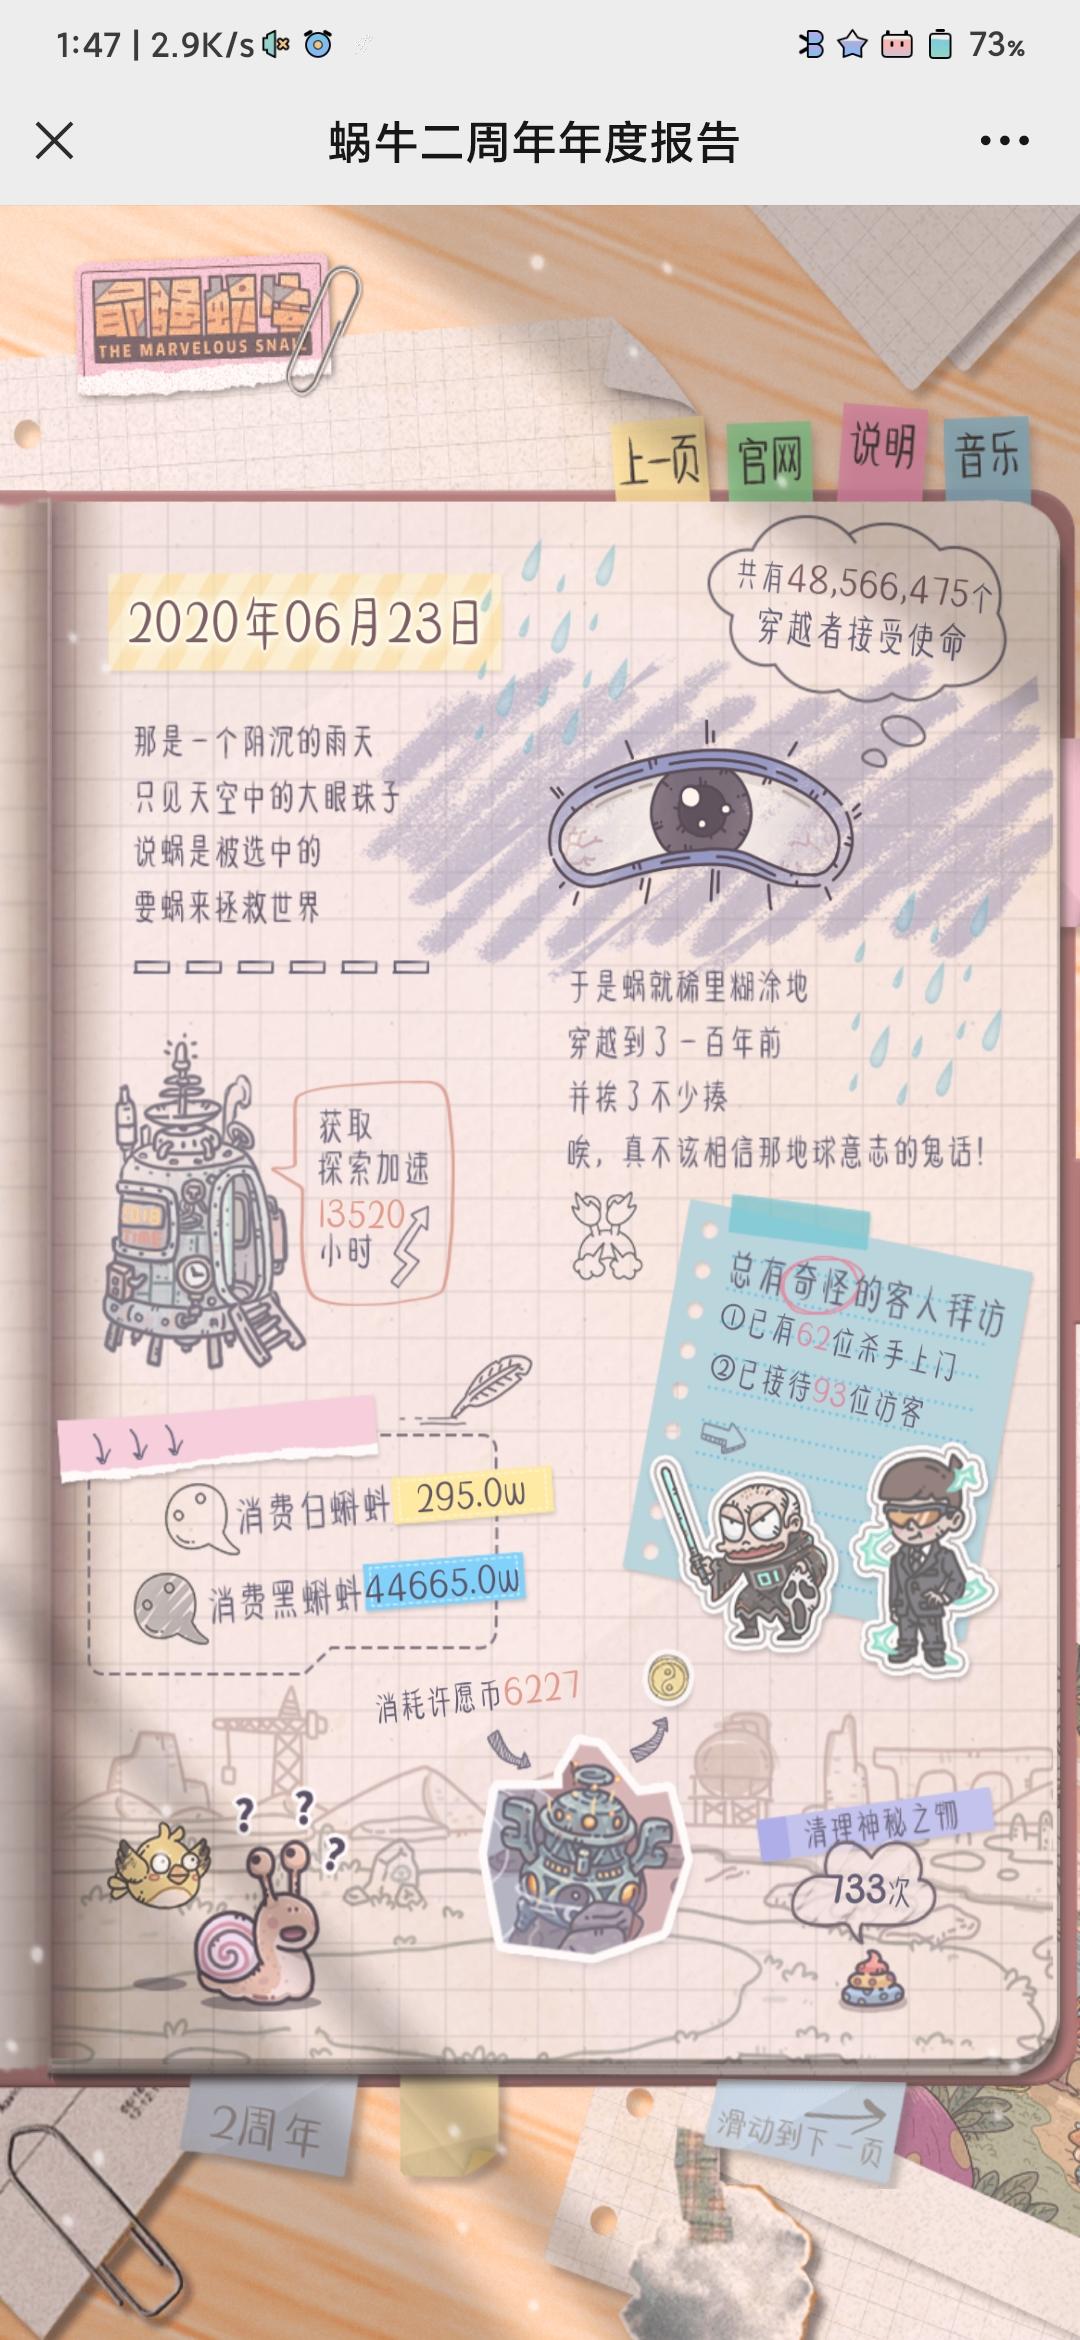 1:47 | 2.9K/s
73%
蜗牛二周年年度报告
最强蜗牛
THE MARVELOUS SNAIL
上一页
官网
说明
音乐
2020年06月23日
共有48,566,475个
穿越者接受使命
那是一个阴沉的雨天
只见天空中的大眼珠子
说蜗是被选中的
要蜗来拯救世界
于是蜗就稀里糊涂地
穿越到了一百年前
并挨了不少揍
唉，真不该相信那地球意志的鬼话！
获取
探索加速
13520
小时
TIME
总有奇怪的客人拜访
①已有62位杀手上门
②已接待93位访客
消费白蝌蚪 295.0w
消费黑蝌蚪 44665.0w
消耗许愿币6227
? ? ?
清理神秘之物
733次
2周年
滑动到下一页